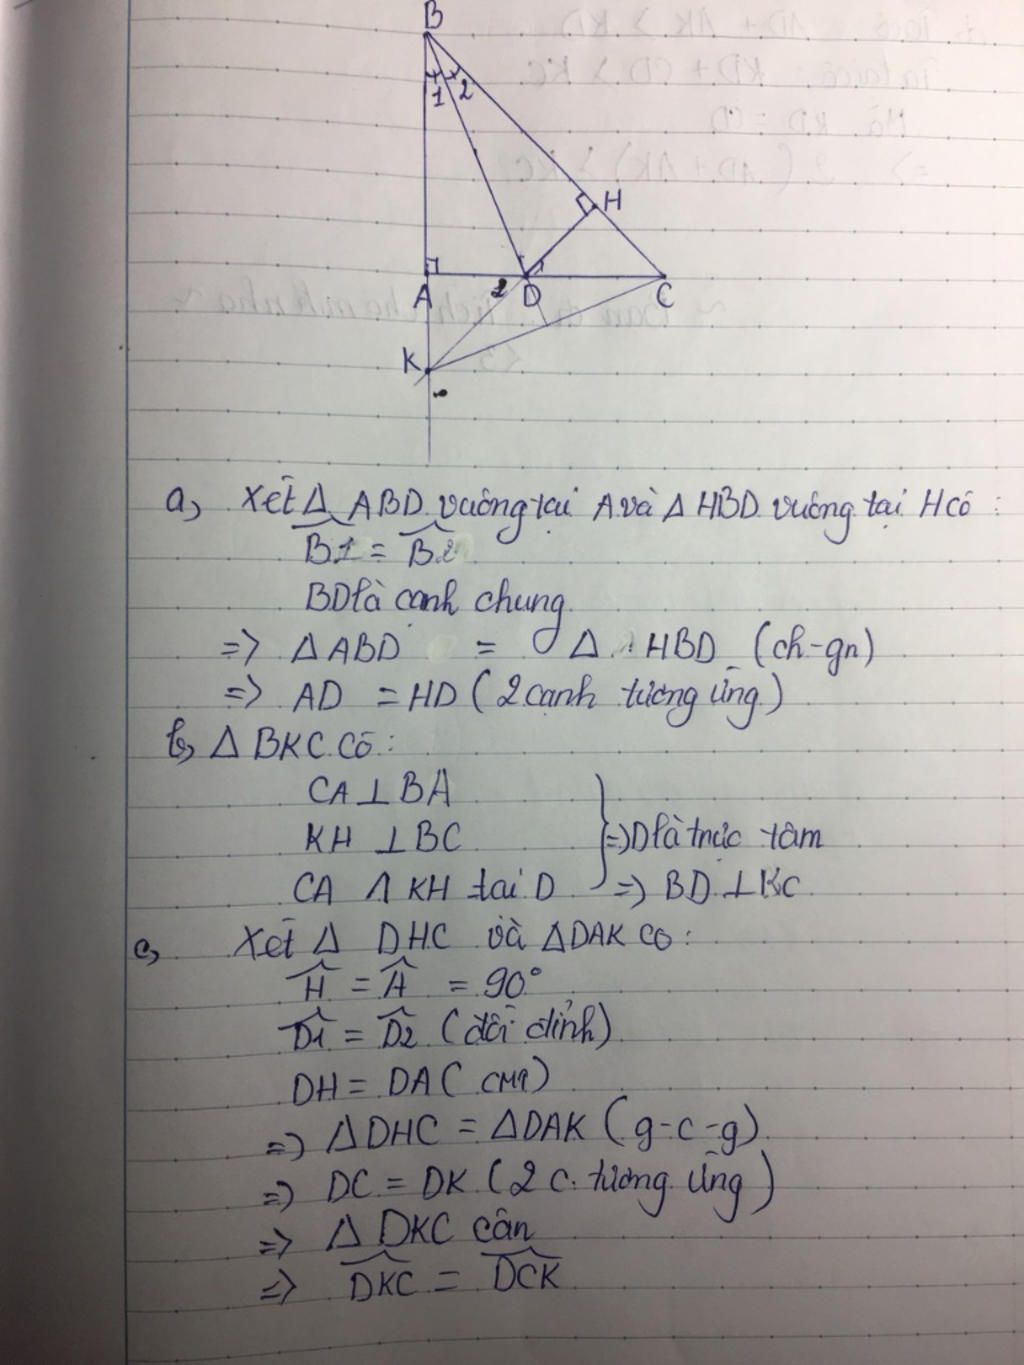 B
1 2
H
A 2 D C
K
a, Xét Δ ABD vuông tại A và Δ HBD vuông tại H có :
B1 = B2
BD là cạnh chung
=> Δ ABD = Δ HBD (ch-gn)
=> AD = HD ( 2 cạnh tương ứng )
b, Δ BKC có :
CA ⊥ BA
KH ⊥ BC => D là trực tâm
CA ∩ KH tại D => BD ⊥ KC
c, Xét Δ DHC và Δ DAK có :
H = A = 90°
D1 = D2 (đối đỉnh)
DH = DA ( cmt)
=> Δ DHC = Δ DAK ( g-c-g)
=> DC = DK ( 2 c. tương ứng )
=> Δ DKC cân
=> DKC = DCK